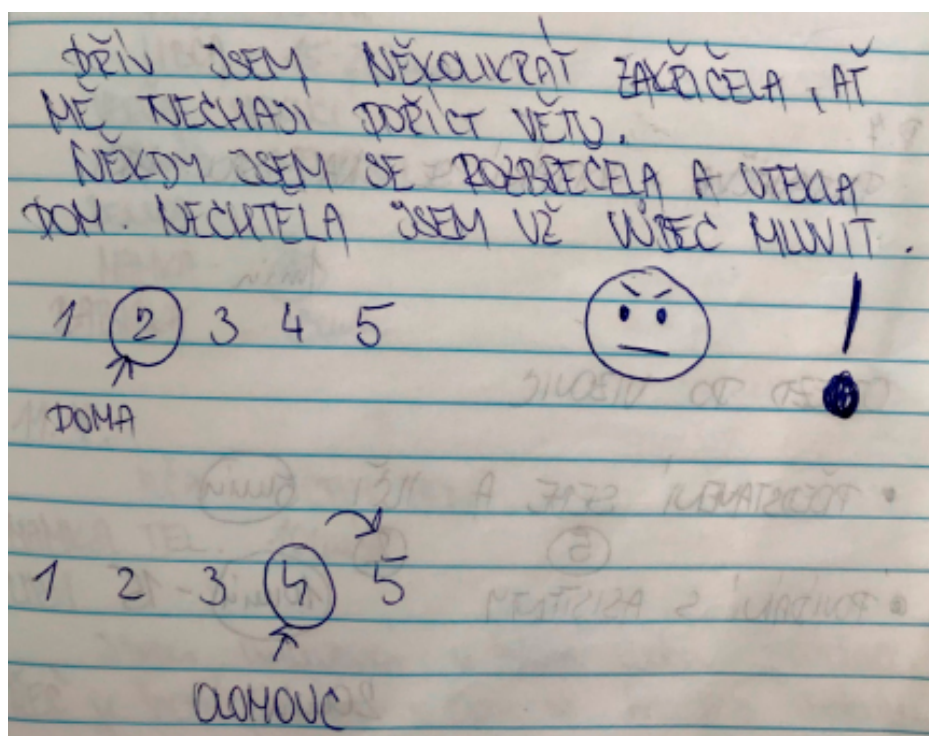 DŘÍV JSEM NĚKOLIKRÁT ZAKŘIČELA, AŤ
MĚ NECHAJÍ DOŘÍCT VĚTU.
NĚKDY JSEM SE ROZBREČELA A UTEKLA
DOM. NECHTELA JSEM UŽ VŮBEC MLUVIT.
1 2 3 4 5 !
DOMA
1 2 3 4 5
OLOMOUC